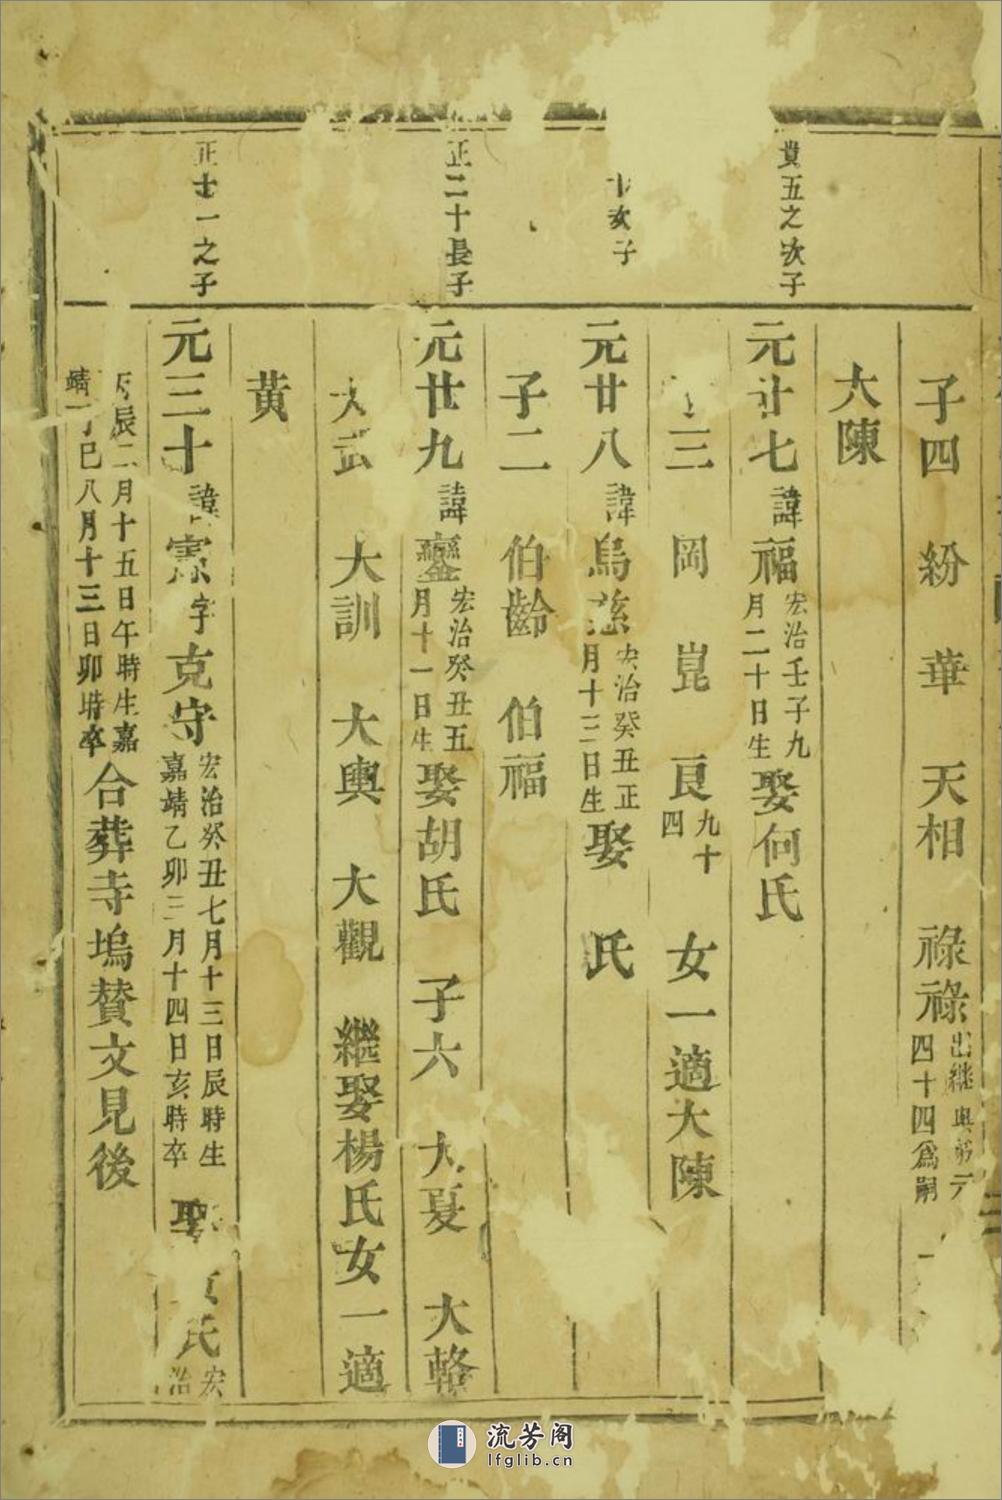 子四 紛 華 天相 祿祿 出繼與第元四十四爲嗣
大陳
貴五之次子
元廿七 諱福 宏治壬子九月二十日生 娶何氏
三 岡 崑 良 九十四 女一適大陳
次子
元廿八 諱 宏治癸丑正月十三日生 娶 氏
子二 伯齡 伯福
正二十長子
元廿九 諱鑾 宏治癸丑五月十一日生 娶胡氏 子六 大夏 大輅
大 大訓 大輿 大觀 繼娶楊氏女一適
黃
正士一之子
元三十 諱憲 字克守 宏治癸丑七月十三日辰時生嘉靖乙卯三月十四日亥時卒 氏 宏治
丙辰二月十五日午時生嘉靖丁巳八月十三日卯時卒 合葬寺塢贊文見後
流芳阁
lfglib.cn